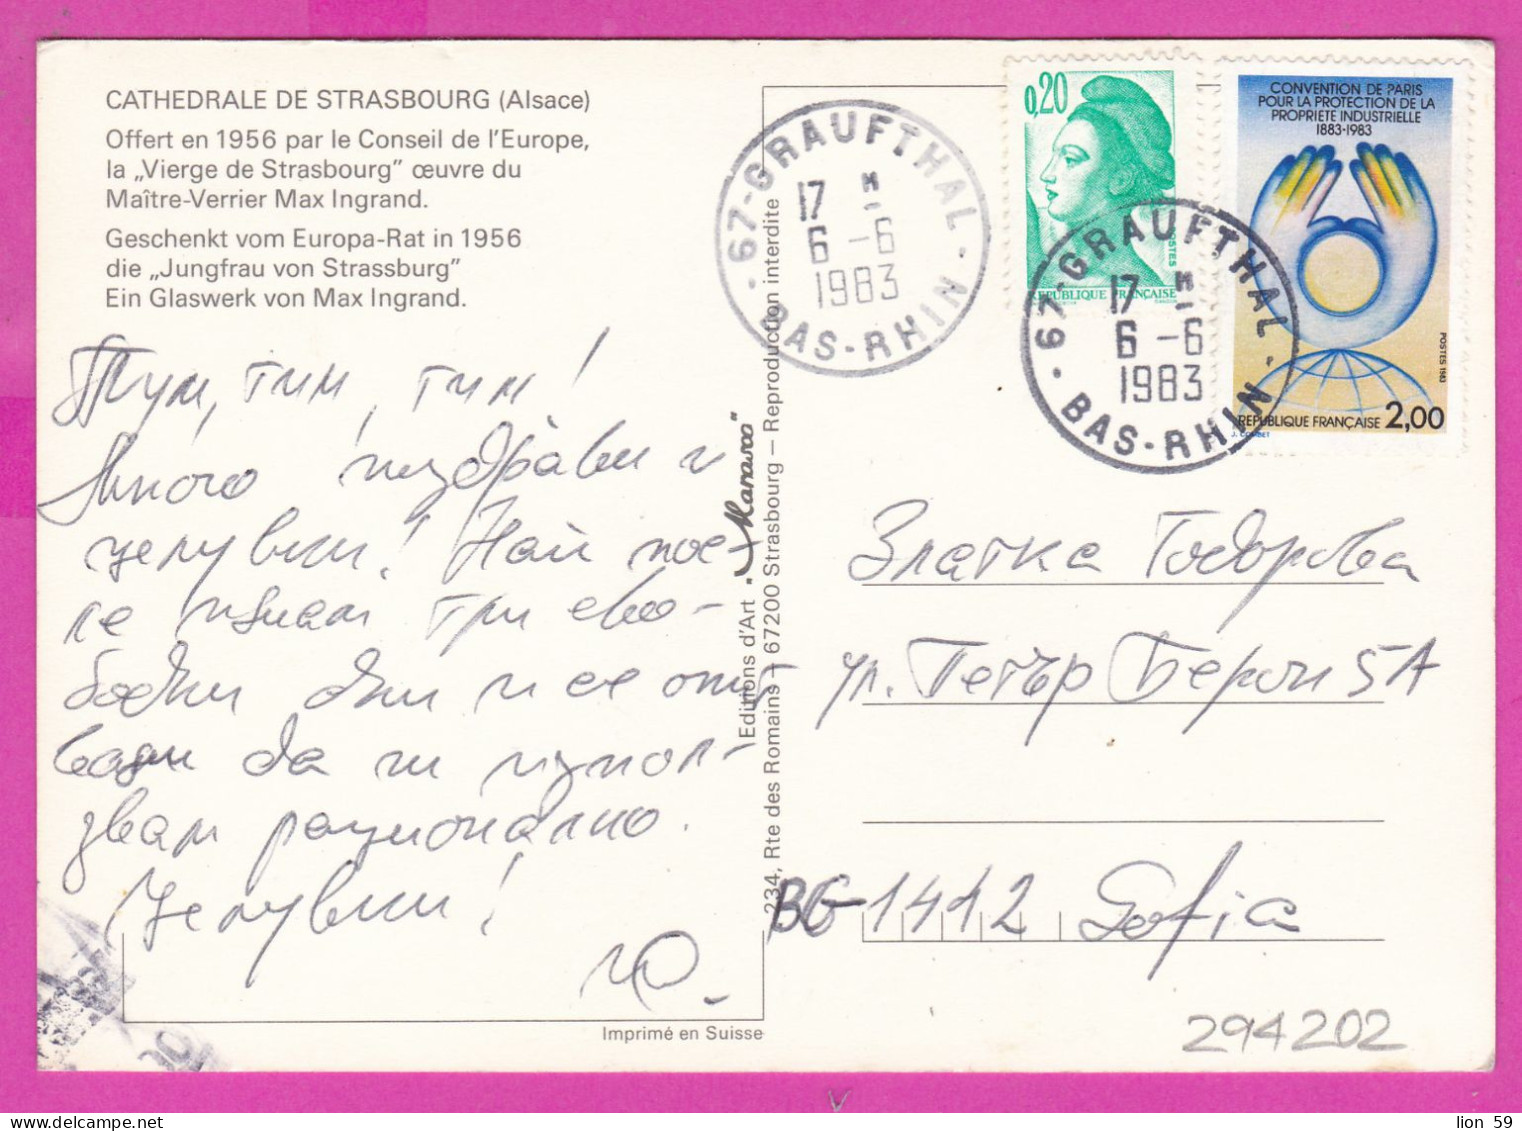 CATHEDRALE DE STRASBOURG (Alsace)
Offert en 1956 par le Conseil de l'Europe,
la „Vierge de Strasbourg" œuvre du
Maître-Verrier Max Ingrand.
Geschenkt vom Europa-Rat in 1956
die „Jungfrau von Strassburg"
Ein Glaswerk von Max Ingrand.
Много поздрави и
целувки! Най-после
имам три сво-
бодни дни и се опит-
вам да ги използ-
вам рационално.
Целувки!
Ю.
Imprimé en Suisse
Editions d'Art
234, Rte des Romains - 67200 Strasbourg — Reproduction interdite
67-GRAUFTHAL
17 H
6 -6
1983
BAS-RHIN
0,20
POSTES
REPUBLIQUE FRANÇAISE
67-GRAUFTHAL
17 H
6 -6
1983
BAS-RHIN
CONVENTION DE PARIS
POUR LA PROTECTION DE LA
PROPRIETE INDUSTRIELLE
1883-1983
POSTES 1983
REPUBLIQUE FRANÇAISE 2,00
Златка Тодорова
ул. Петър Берон 5А
BG-1412 Sofia
294202
lion 59